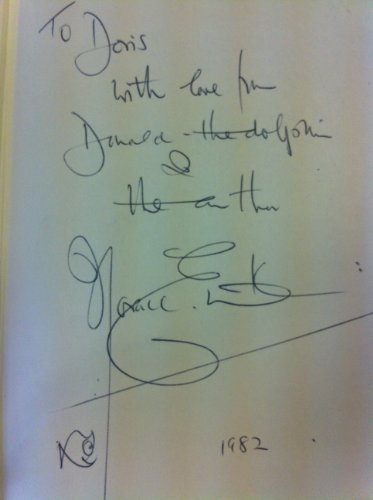 To Doris
with love from
Donald - the dolphin
&
the author
Horace
1982